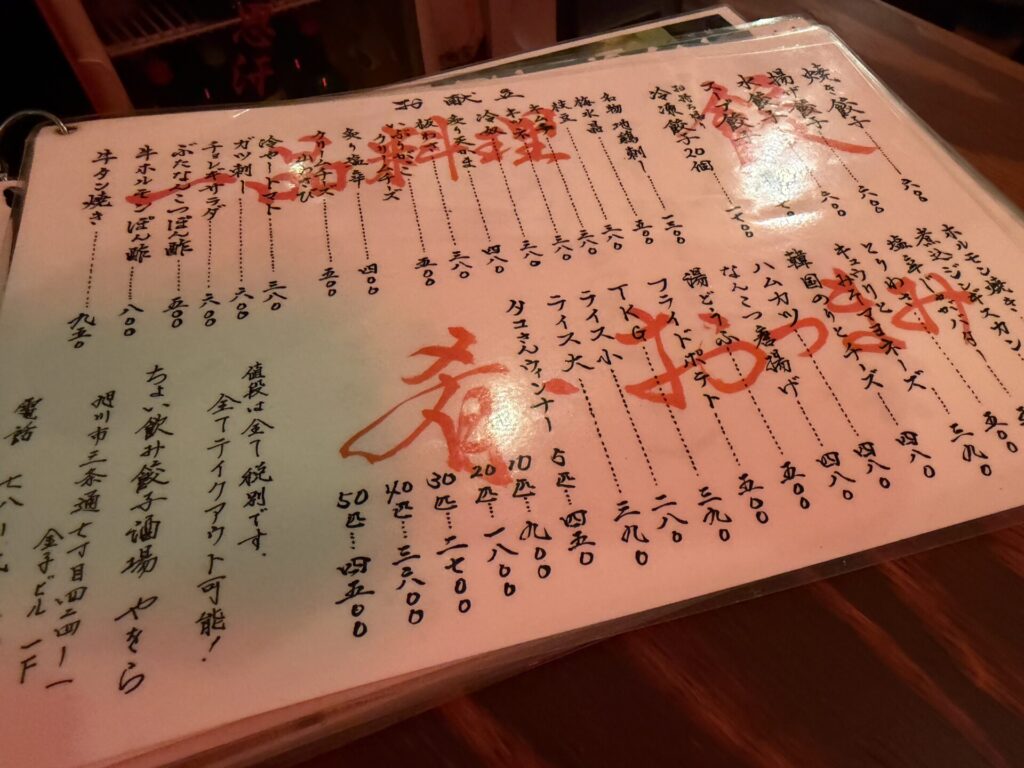 お献立
餃子
焼き餃子 六〇〇
揚げ餃子 六〇〇
水餃子
スープ餃子
冷凍餃子20個
一品料理
名物
梅水晶 五〇〇
枝豆 三八〇
キムチ 三八〇
冷奴 三八〇
炙り 四八〇
板わさ 三八〇
五〇〇
炙り塩辛 四〇〇
クリームチーズ 五〇〇
冷やしトマト 三八〇
ガツ刺し 六〇〇
チョレギサラダ 六〇〇
ぶたなんこつぽん酢 五〇〇
牛ホルモンぽん酢 八〇〇
牛タン焼き 九五〇
肴・おつまみ
ホルモン焼き
煮込みジンギスカン
塩辛じゃがバター 五〇〇
とりわさ 三九〇
キュウリみそマヨネーズ 四八〇
韓国のりとチーズ 四八〇
ハムカツ 四八〇
なんこつ唐揚げ 五〇〇
湯どうふ 五〇〇
フライドポテト 三九〇
TKG 二八〇
ライス小
ライス大 三九〇
タコさんウィンナー 5匹…四五〇
10匹…九〇〇
20匹…一八〇〇
30匹…二七〇〇
40匹…三六〇〇
50匹…四五〇〇
値段は全て税別です。
全てテイクアウト可能！
ちょい飲み餃子酒場 やをら
旭川市三条通七丁目四二四ー一
金子ビル 一F
電話 七八ー